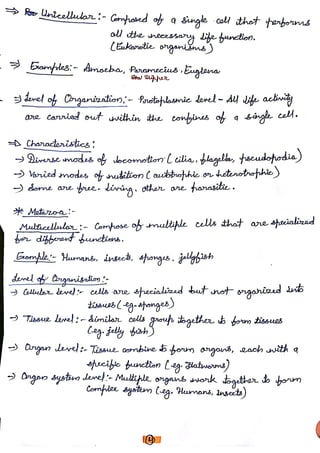 ⇒ Unicellular :- Composed of a single cell that performs
all the necessary life function.
(Eukarotic organisms)
⇒ Examples:- Amoeba, Paramecius, Euglena
⇒ Level of Organization:- Protoplasmic level - All life activity
are carried out within the confines of a single cell.
⇒ Characteristics :
→ Diverse modes of locomotion ( cilia, flagella, pseudopodia)
→ Varied modes of nutrition ( autotrophic or heterotrophic)
→ Some are free. living, other are parasitic.
* Metazoa :-
Multicellular :- Compose of multiple cells that are specialized
for different functions.
Example:- Humans, insects, sponges, jellyfish
level of Organisation :-
→ Cellular level :- cells are specialized but not organized into
tissues (eg. sponges)
→ Tissue level :- Similar cells group together to form tissues
(eg. jelly fish)
→ Organ level :- Tissue combine to form organs, each with a
specific function (eg. flatworms)
→ Organ system level :- Multiple organs work together to form
Complex system (eg. Humans, insects)
4